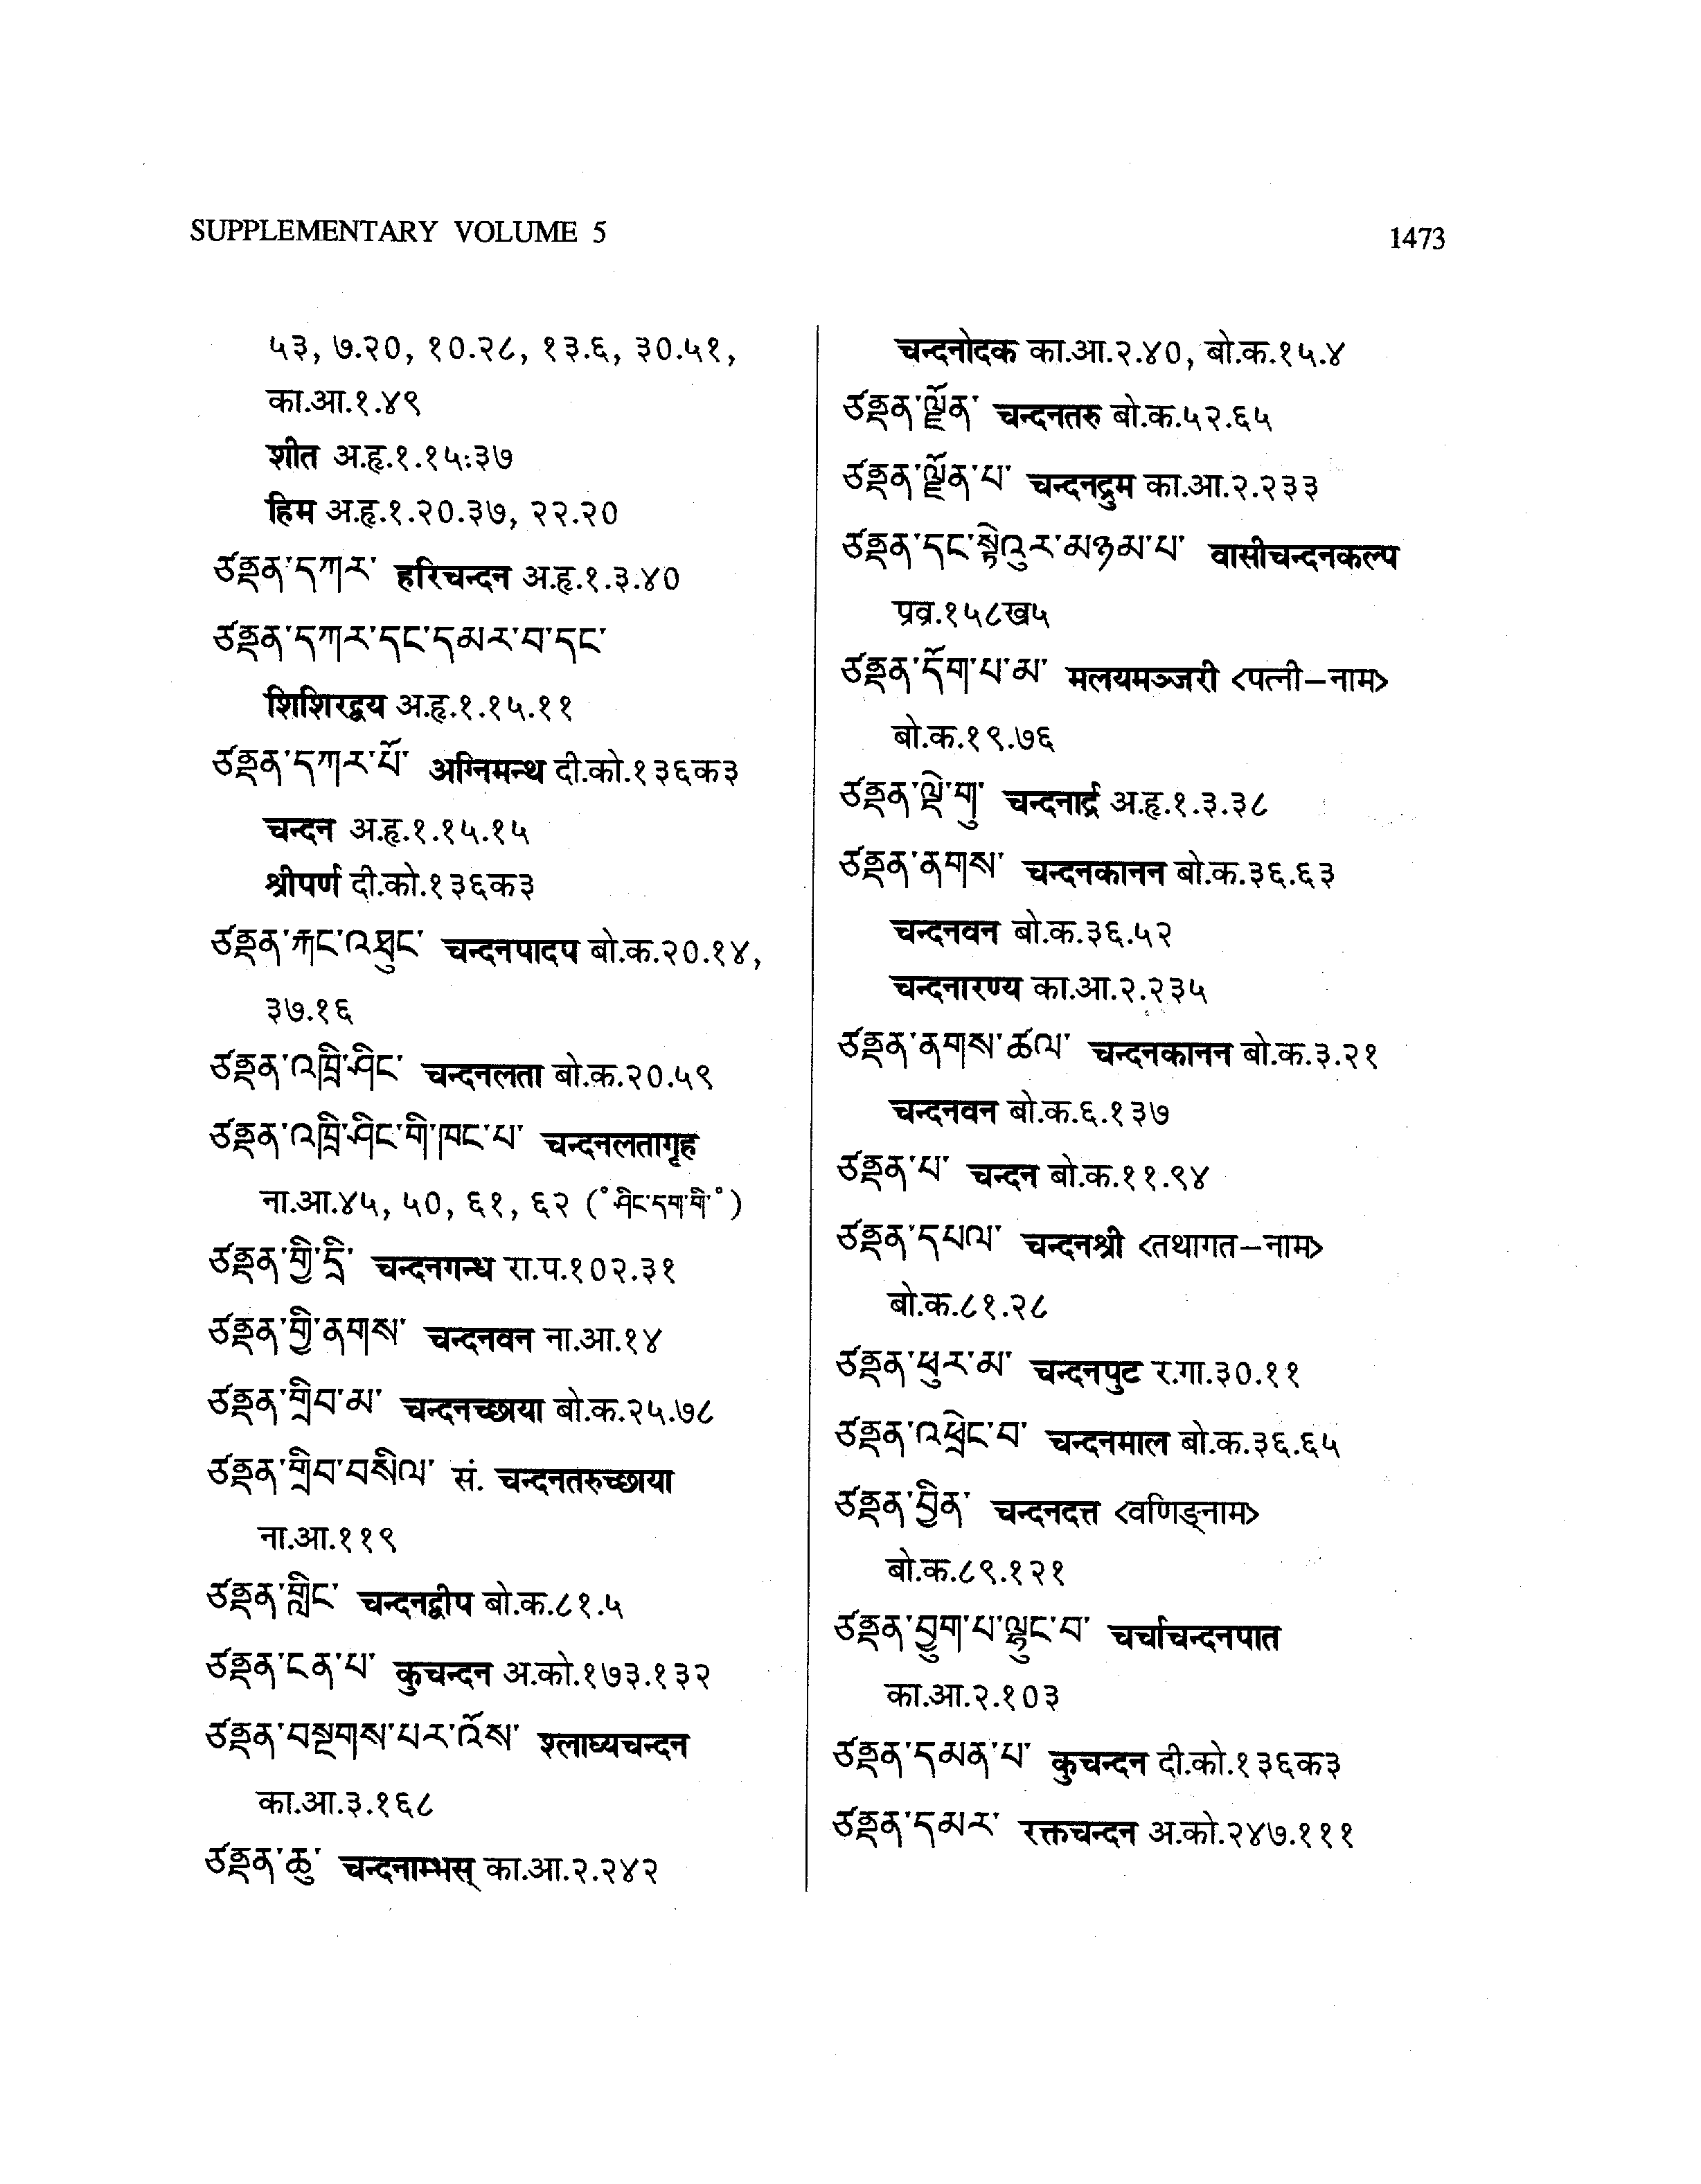 SUPPLEMENTARY VOLUME 5
1473
५३, ७.२०, १०.२८, १३.६, ३०.५१,
का.आ.१.४९
शीत अ.हृ.१.१५:३७
हिम अ.हृ.१.२०.३७, २२.२०
ཙནྡན་དཀར་ हरिचन्दन अ.हृ.१.३.४०
ཙནྡན་དཀར་དང་དམར་བ་དང་
शिशिरद्वय अ.हृ.१.१५.११
ཙནྡན་དཀར་པོ་ अग्निमन्थ दी.को.१३६क३
चन्दन अ.हृ.१.१५.१५
श्रीपर्ण दी.को.१३६क३
ཙནྡན་རྐང་འཐུང་ चन्दनपादप बो.क.२०.१४,
३७.१६
ཙནྡན་འཁྲི་ཤིང་ चन्दनलता बो.क.२०.५९
ཙནྡན་འཁྲི་ཤིང་གི་ཁང་པ་ चन्दनलतागृह
ना.आ.४५, ५०, ६१, ६२ (˚ཤིང་དག་གི་˚)
ཙནྡན་གྱི་དྲི་ चन्दनगन्ध रा.प.१०२.३१
ཙནྡན་གྱི་ནགས་ चन्दनवन ना.आ.१४
ཙནྡན་གྲིབ་མ་ चन्दनच्छाया बो.क.२५.७८
ཙནྡན་གྲིབ་བསིལ་ सं. चन्दनतरुच्छाया
ना.आ.११९
ཙནྡན་གླིང་ चन्दनद्वीप बो.क.८१.५
ཙནྡན་ངན་པ་ कुचन्दन अ.को.१७३.१३२
ཙནྡན་བསྔགས་པར་འོས་ श्लाघ्यचन्दन
का.आ.३.१६८
ཙནྡན་ཆུ་ चन्दनाम्भस् का.आ.२.२४२
चन्दनोदक का.आ.२.४०, बो.क.१५.४
ཙནྡན་ལྗོན་ चन्दनतरु बो.क.५२.६५
ཙནྡན་ལྗོན་པ་ चन्दनद्रुम का.आ.२.२३३
ཙནྡན་དང་སྟེའུར་མཉམ་པ་ वासीचन्दनकल्प
प्रव्र.१५८ख५
ཙནྡན་དོག་པ་མ་ मलयमञ्जरी <पत्नी–नाम>
बो.क.१९.७६
ཙནྡན་ལྡེ་གུ་ चन्दनार्द्र अ.हृ.१.३.३८
ཙནྡན་ནགས་ चन्दनकानन बो.क.३६.६३
चन्दनवन बो.क.३६.५२
चन्दनारण्य का.आ.२.२३५
ཙནྡན་ནགས་ཚལ་ चन्दनकानन बो.क.३.२१
चन्दनवन बो.क.६.१३७
ཙནྡན་པ་ चन्दन बो.क.११.९४
ཙནྡན་དཔལ་ चन्दनश्री <तथागत–नाम>
बो.क.८१.२८
ཙནྡན་ཕུར་མ་ चन्दनपुट र.गा.३०.११
ཙནྡན་འཕྲེང་བ་ चन्दनमाल बो.क.३६.६५
ཙནྡན་བྱིན་ चन्दनदत्त <वणिङ्नाम>
बो.क.८९.१२१
ཙནྡན་བྱུག་པ་ལྷུང་བ་ चर्चाचन्दनपात
का.आ.२.१०३
ཙནྡན་དམན་པ་ कुचन्दन दी.को.१३६क३
ཙནྡན་དམར་ रक्तचन्दन अ.को.२४७.१११